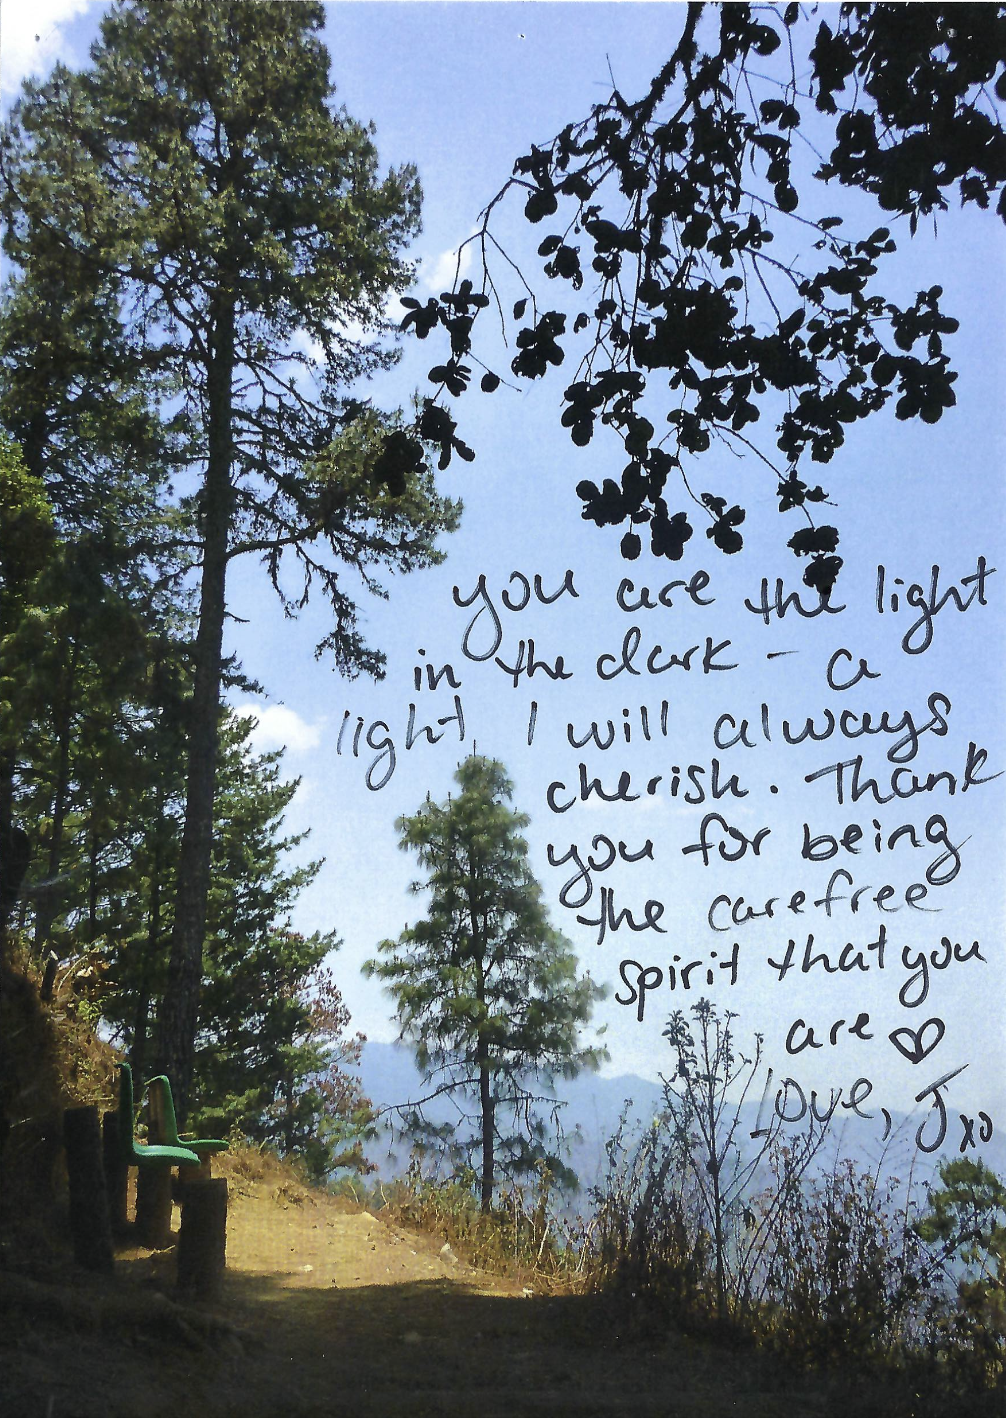 you are the light
in the dark - a
light I will always
cherish. Thank
you for being
the carefree
spirit that you
are ♡
Love, J xo